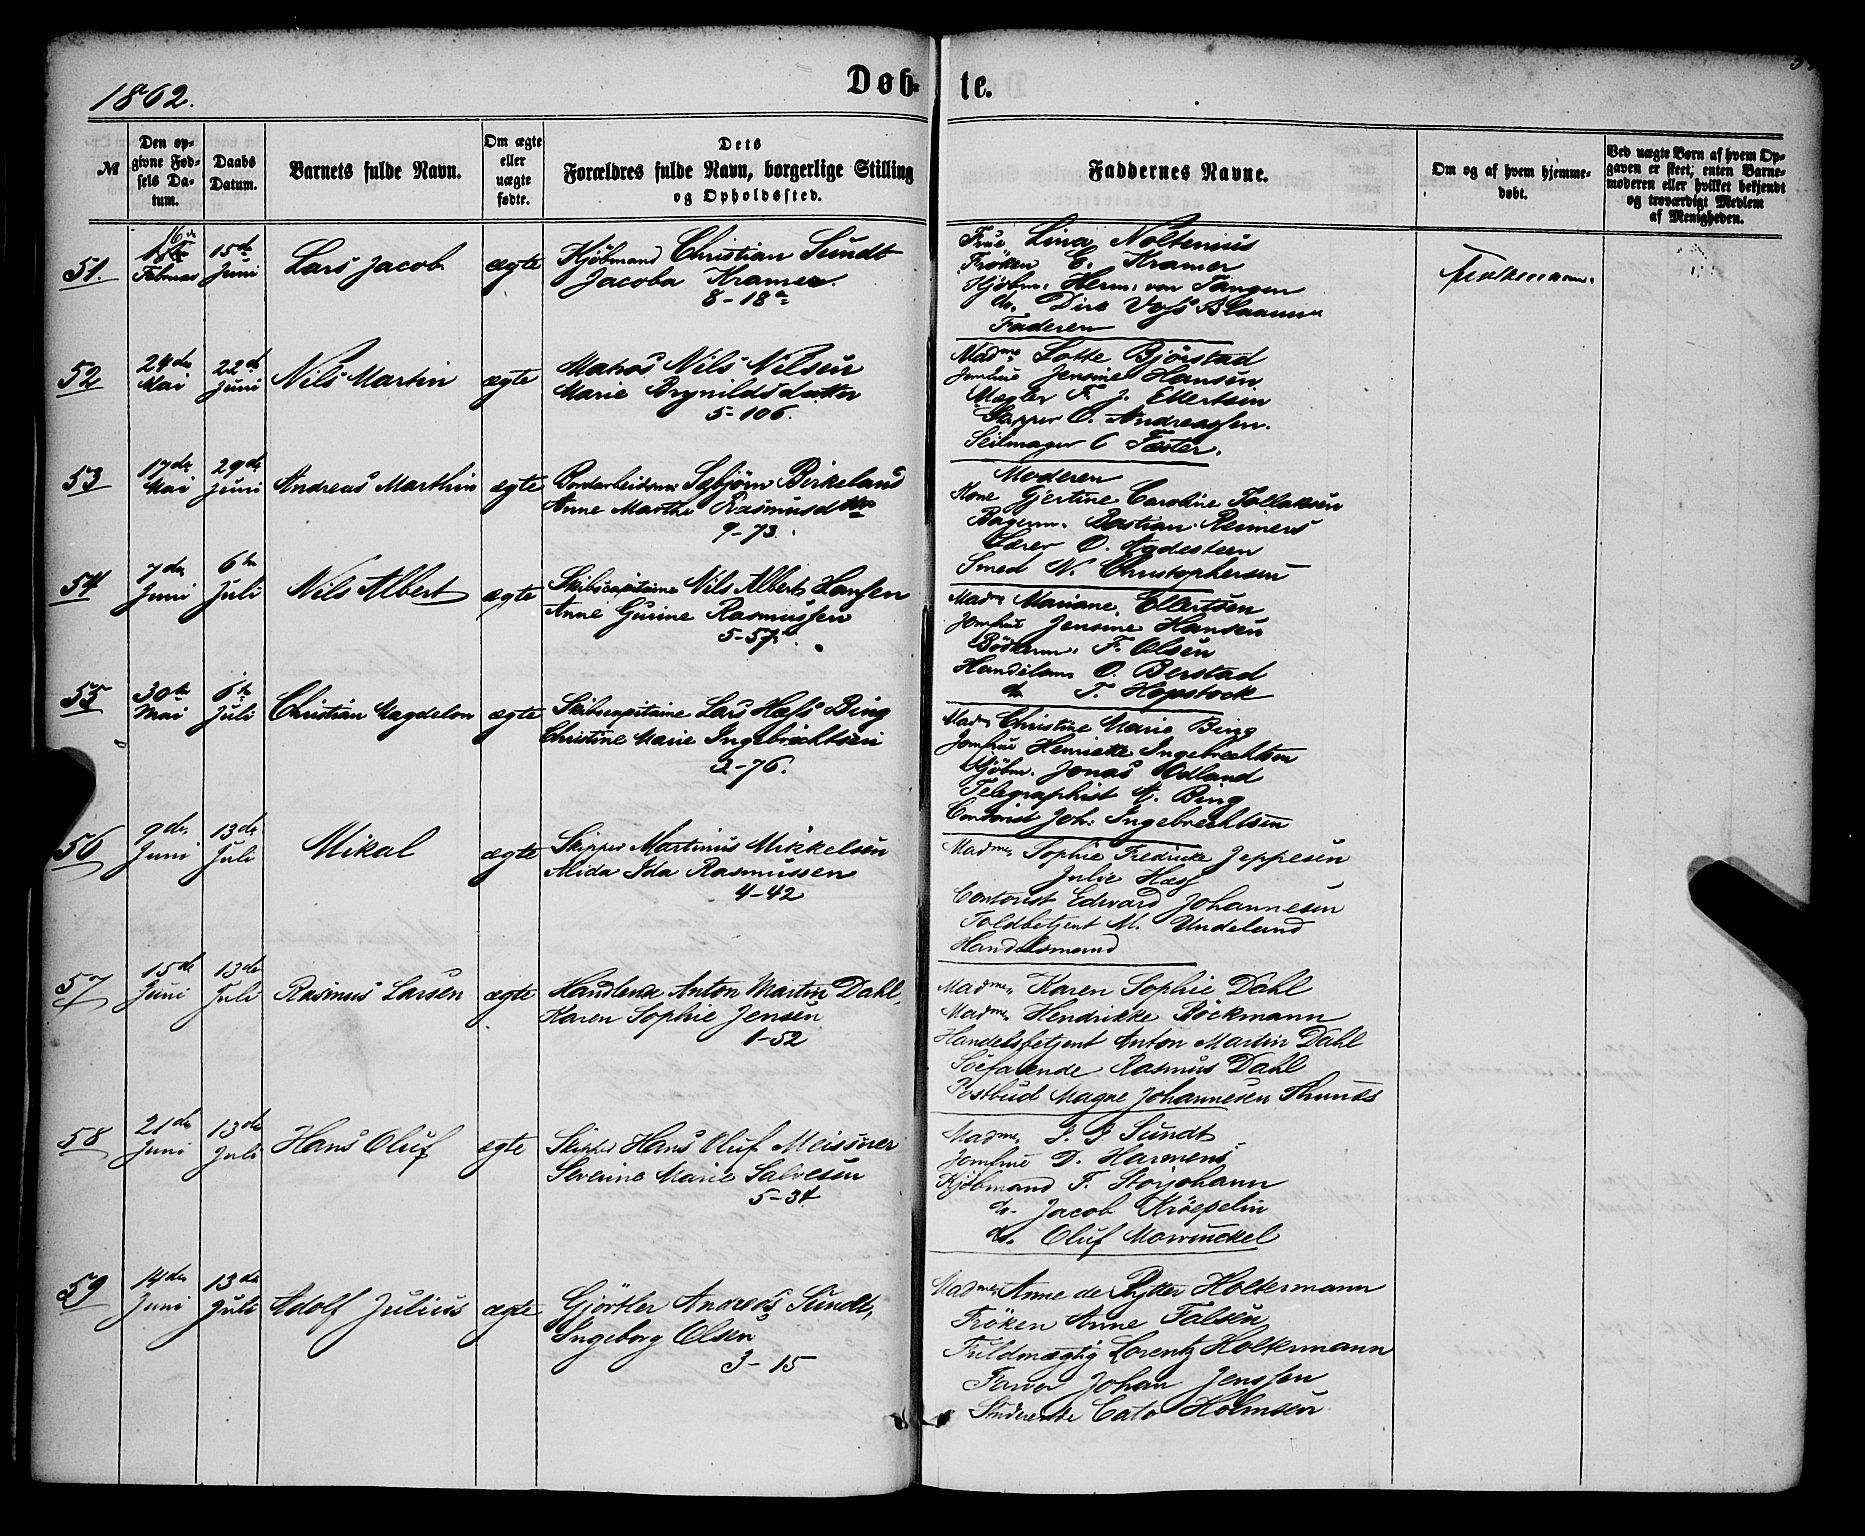 1862.
Døb-
te.
№
Den op-
givne Fød-
sels Da-
tum.
Daabs
Datum.
Barnets fulde Navn.
Om ægte
eller
uægte
fødte.
Dets
Forældres fulde Navn, borgerlige Stilling
og Opholdssted.
Faddernes Navne.
Om og af hvem hjemme-
døbt.
Ved uægte Børn af hvem Op-
gaven er skeet, enten Barne-
moderen eller hvilket bekjendt
og troværdigt Medlem
af Menigheden.
51.
16de
Februar
15de
Juni
Lars Jacob
ægte
Kjøbmand Christian Sundt
Jacoba Kramer.
8-18a
Frue Lina Noltenius
Frøken C. Kramer
Kjøbm. Herm. von Tangen
do. Dirk Voss Blaauw
Faderen
52
24de
Mai
22de
Juni
Nils Martin
ægte
Matros Nils Nilsen
Marie Brynildsdatter
5-106.
Madme Lotte Bjørstad
Jomfrue Jensine Hansen
Mægler F. J. Ellertsen
Skipper O. Andreassen.
Seilmager C Fæster.
53
17de
Mai
29de
Juni
Andreas Marthin
ægte
Bordarbeidsm. Sæbjørn Birkeland
Anne Marthe Rasmusdtr
9-73.
Moderen
Kone Gjertine Caroline Tollaksen
Bagerm. Bastian Remers
Lærer O. Agdesteen
Smed N. Christophersen
54
7de
Juni
6te
Juli
Nils Albert
ægte
Skibscapitaine Nils Albert Hansen
Anne Gurine Rasmussen
5-57.
Madme Mariane Ellertsen
Jomfrue Jensine Hansen
Bødkerm. F. Olsen
Handelsm. O. Berstad
do T. Hopstock
55
30te
Mai
6te
Juli
Christian Magdelon
ægte
Skibscapitaine Lars Hess Bing
Christine Marie Ingebrechtsen
2-76.
Madme Christine Marie Bing
Jomfrue Henriette Ingebrechtsen
Kjøbm. Jonas Ødland
Telegraphist A. Bing
Contorist Joh. Ingebrechtsen
56
9de
Juni
13de
Juli
Mikal
ægte
Skipper Martinus Mikkelsen
Alida Ida Rasmussen
4-42
Madme Sophie Fredrikke Jeppesen
Julie Hess
Contorist Edward Johannesen
Toldbetjent M. Undeland
Handelsmand
57
15de
Juni
13de
Juli
Rasmus Larsen
ægte
Handlende Anton Martin Dahl,
Karen Sophie Jensen
1-52
Madme Karen Sophie Dahl
Madme Hendrikke Böckmann
Handelsbetjent Anton Martin Dahl
Söefarende Rasmus Dahl
Postbud Magne Johannesen Thunæs
58
21de
Juni
13de
Juli
Hans Oluf
ægte
Skipper Hans Oluf Meissner
Severine Marie Salvesen
5-34
Madme S. J Sundt
Jomfrue D. Harmens
Kjøbmand F. Storjohann
do. Jacob Kröepelin
do. Oluf Mowinckel
59
14de
Juni
13de
Juli
Adolf Julius
ægte
Gjørtler Andreas Sundt,
Ingeborg Olsen
3-15
Madme Anne de Rytter Holtermann
Frøken Anne Falsen
Fuldmægtig Lorentz Holtermann
Farver Johan Jenssen
Studerende Cato Holmsen